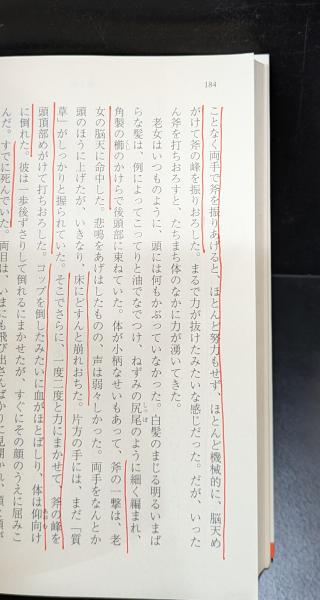 184
ことなく両手で斧を振りあげると、ほとんど努力もせず、ほとんど機械的に、脳天め
がけて斧の峰を振りおろした。まるで力が抜けたみたいな感じだった。だが、いった
ん斧を打ちおろすと、たちまち体のなかに力が湧いてきた。
老女はいつものように、頭には何もかぶっていなかった。白髪のまじる明るいまば
らな髪は、例によってこってりと油でなでつけ、ねずみの尻尾のように細く編まれ、
しっぽ
角製の櫛のかけらで後頭部に束ねていた。体が小柄なせいもあって、斧の一撃は、老
女の脳天に命中した。悲鳴をあげはしたものの、声は弱々しかった。両手をなんとか
頭のほうに上げたが、いきなり、床にどすんと崩れおちた。片方の手には、まだ「質
草」がしっかりと握られていた。そこでさらに、一度二度と力にまかせて、斧の峰を
頭頂部めがけて打ちおろした。コップを倒したみたいに血がほとばしり、体は仰向け
に倒れた。彼は一歩後ずさりして倒れるにまかせたが、すぐにその顔のうえに屈みこ
んだ。すでに死んでいた。両目は、いまにも飛び出さんばかりに見開かれ、